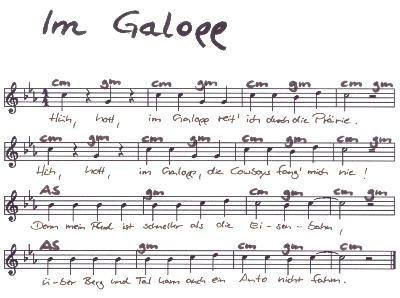 Im Galopp
cm gm cm gm cm gm cm gm
Hüh, hott, im Galopp reit' ich durch die Prärie.
cm gm cm gm cm gm cm gm
Hüh, hott, im Galopp, die Cowboys fang' mich nie!
AS gm cm gm cm
Denn mein Pferd ist schneller als die Ei-sen-bahn,
AS gm cm gm cm
ü-ber Berg und Tal kann auch ein Auto nicht fahrn.